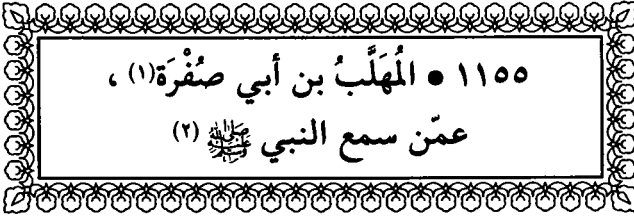 ١١٥٥ • الُمهَلَّبُ بن أبي صُفْرَة(١) ،
عمّن سمع النبي ﷺ (٢)